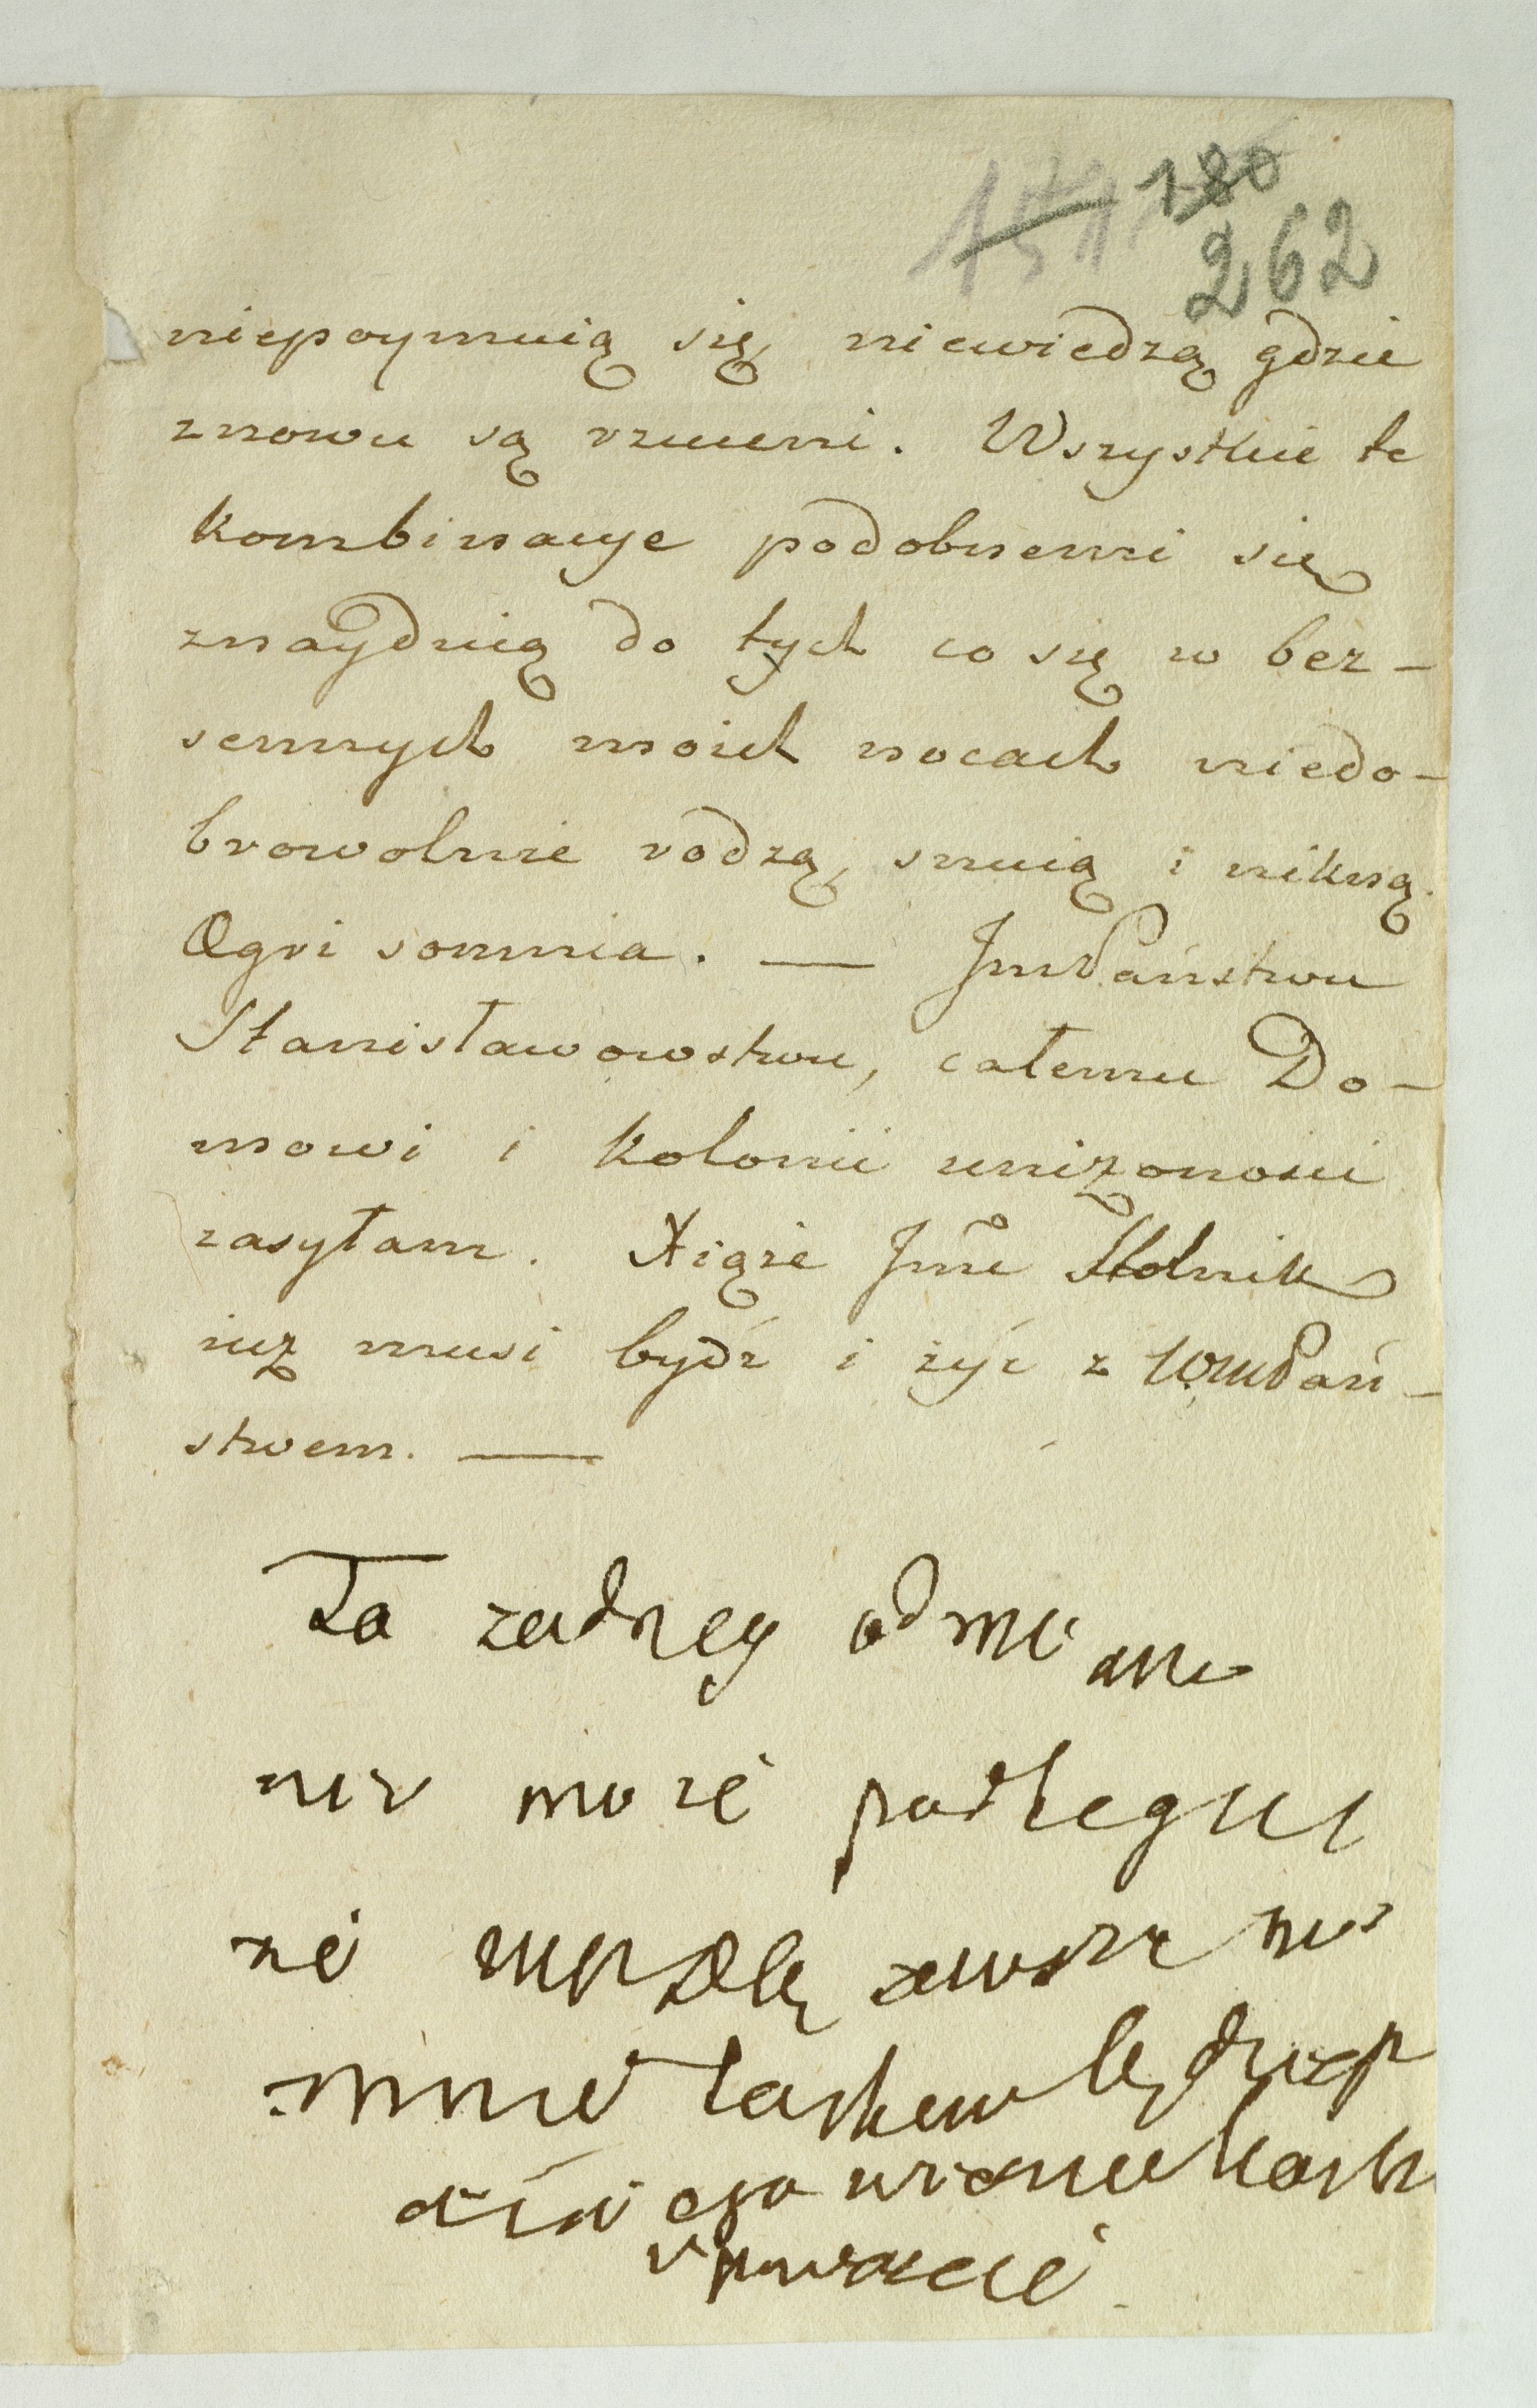 180
262
niepoymuią się, niewiedzą gdzie
znowu są rzuceni. Wszystkie te
kombinacye podobnemi się
znayduią do tych co się w bez-
sennych moich nocach niedo-
browolnie rodzą, snuią i nikną.
Ægri somnia. — JmPaństwu
Stanisławowstwu, całemu Do-
mowi i Kolonii uniżoności
zasyłam. Xiąże Jmć Stolnik
iuż musi bydź i żyć z WmPań-
stwem. —
Ta żadney odmianie
nie może podlegać
że zawsze na
mnie łaskaw będziesz